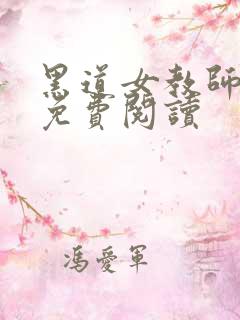 黑道女教師
免費閱讀
馮愛軍